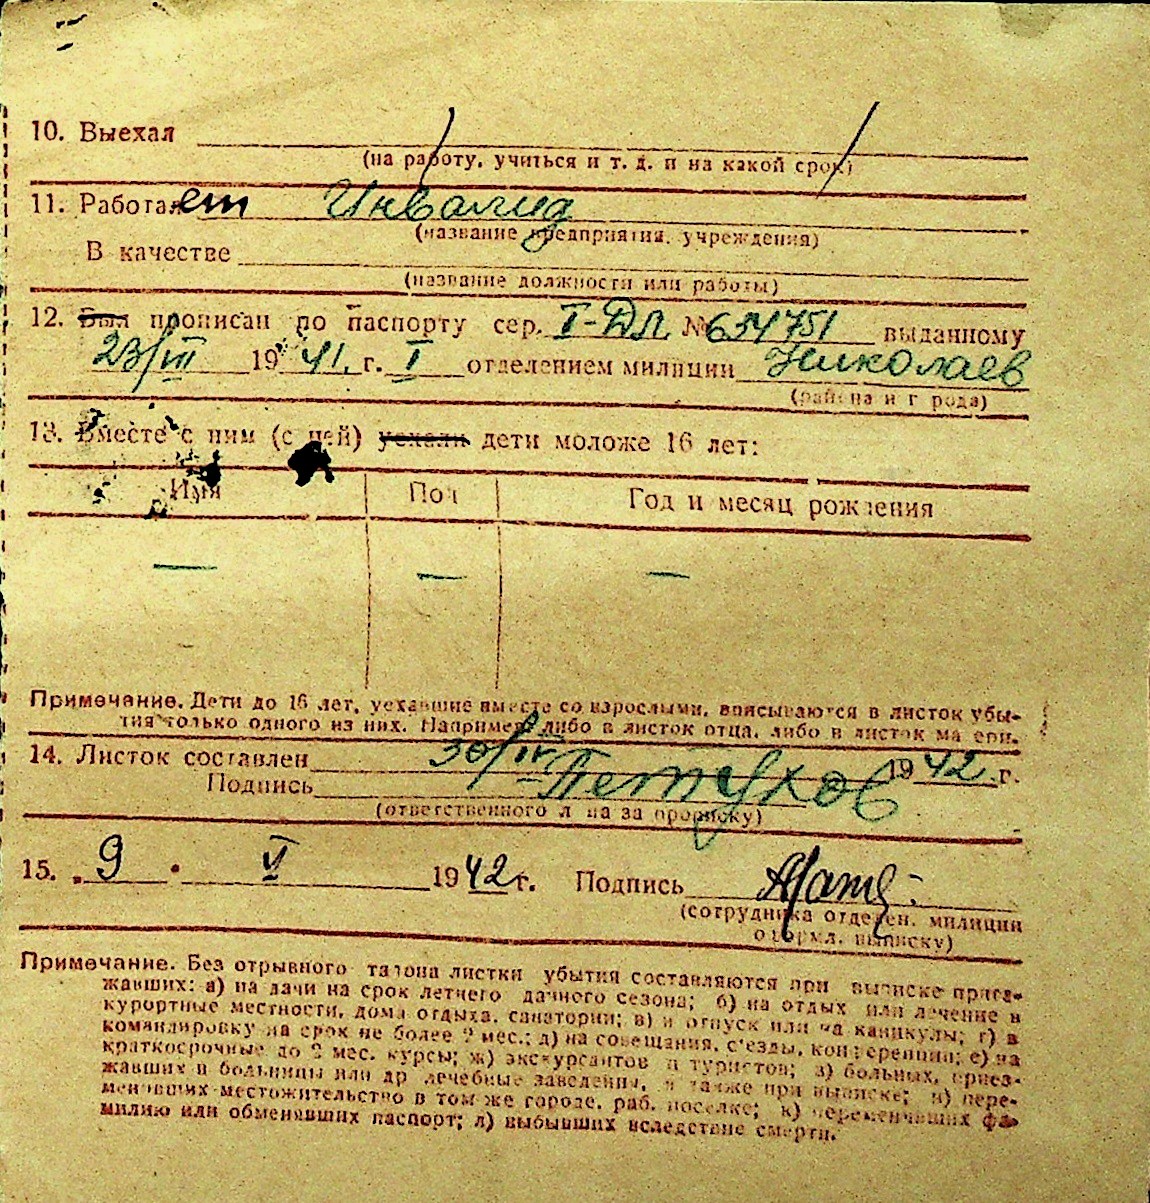 10. Выехал
(на работу, учиться и т. д. и на какой срок)
11. Работает Инвалид
(название предприятия, учреждения)
В качестве
(название должности или работы)
12. Был прописан по паспорту сер. I-ДЛ № 654751 выданному
23/III 1941. г. I отделением милиции Николаев
(района и города)
13. Вместе с ним (с ней) уехали дети моложе 16 лет:
Имя Пол Год и месяц рождения
— — —
Примечание. Дети до 16 лет, уехавшие вместе со взрослыми, вписываются в листок убы-
тия только одного из них. Например либо в листок отца, либо в листок матери.
14. Листок составлен 30/IV 1942 г.
Подпись Петухов
(ответственного лица за прописку)
15. „9 • VI 1942 г. Подпись
(сотрудника отделен. милиции
оформл. выписку)
Примечание. Без отрывного талона листки убытия составляются при выписке приез-
жавших: а) на дачи на срок летнего дачного сезона; б) на отдых или лечение в
курортные местности, дома отдыха, санатории; в) в отпуск или на каникулы; г) в
командировку на срок не более 2 мес.; д) на совещания, съезды, конференции; е) на
краткосрочные до 2 мес. курсы; ж) экскурсантов и туристов; з) больных, приез-
жавших в больницы или др лечебные заведения, а также при выписке; и) пере-
менивших местожительство в том же городе, раб. поселке; к) переменивших фа-
милию или обменявших паспорт; л) выбывших вследствие смерти.